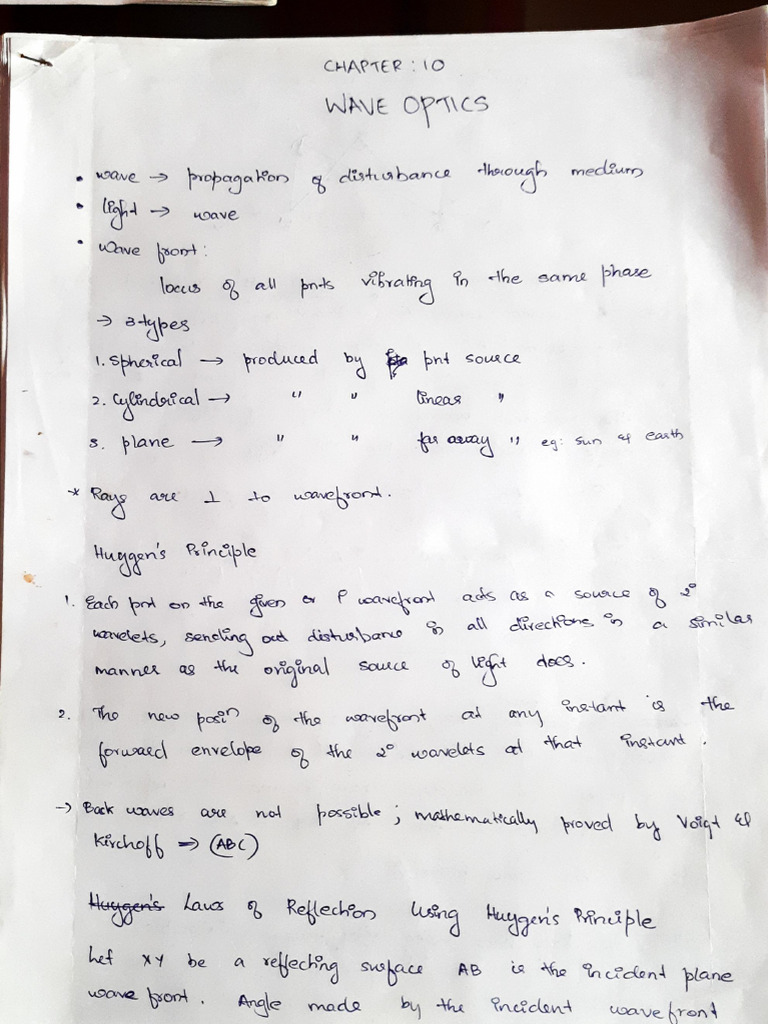 CHAPTER : 10
WAVE OPTICS
• wave → propagation of disturbance through medium
• light → wave
• wave front :
locus of all pnts vibrating in the same phase
→ 3-types
1. Spherical → produced by pnt source
2. Cylindrical → " " linear "
3. plane → " " far away " eg: sun & earth
* Rays are ⊥ to wavefront.
Huygen's Principle
1. Each pnt on the given or P wavefront acts as a source of 2°
wavelets, sending out disturbance in all directions in a similar
manner as the original source of light does.
2. The new posiⁿ of the wavefront at any instant is the
forward envelope of the 2° wavelets at that instant.
→ Back waves are not possible ; mathematically proved by Voigt &
Kirchoff ⇒ (ABC)
Huygen's Laws of Reflection Using Huygen's Principle
Let XY be a reflecting surface AB is the incident plane
wave front. Angle made by the incident wavefront